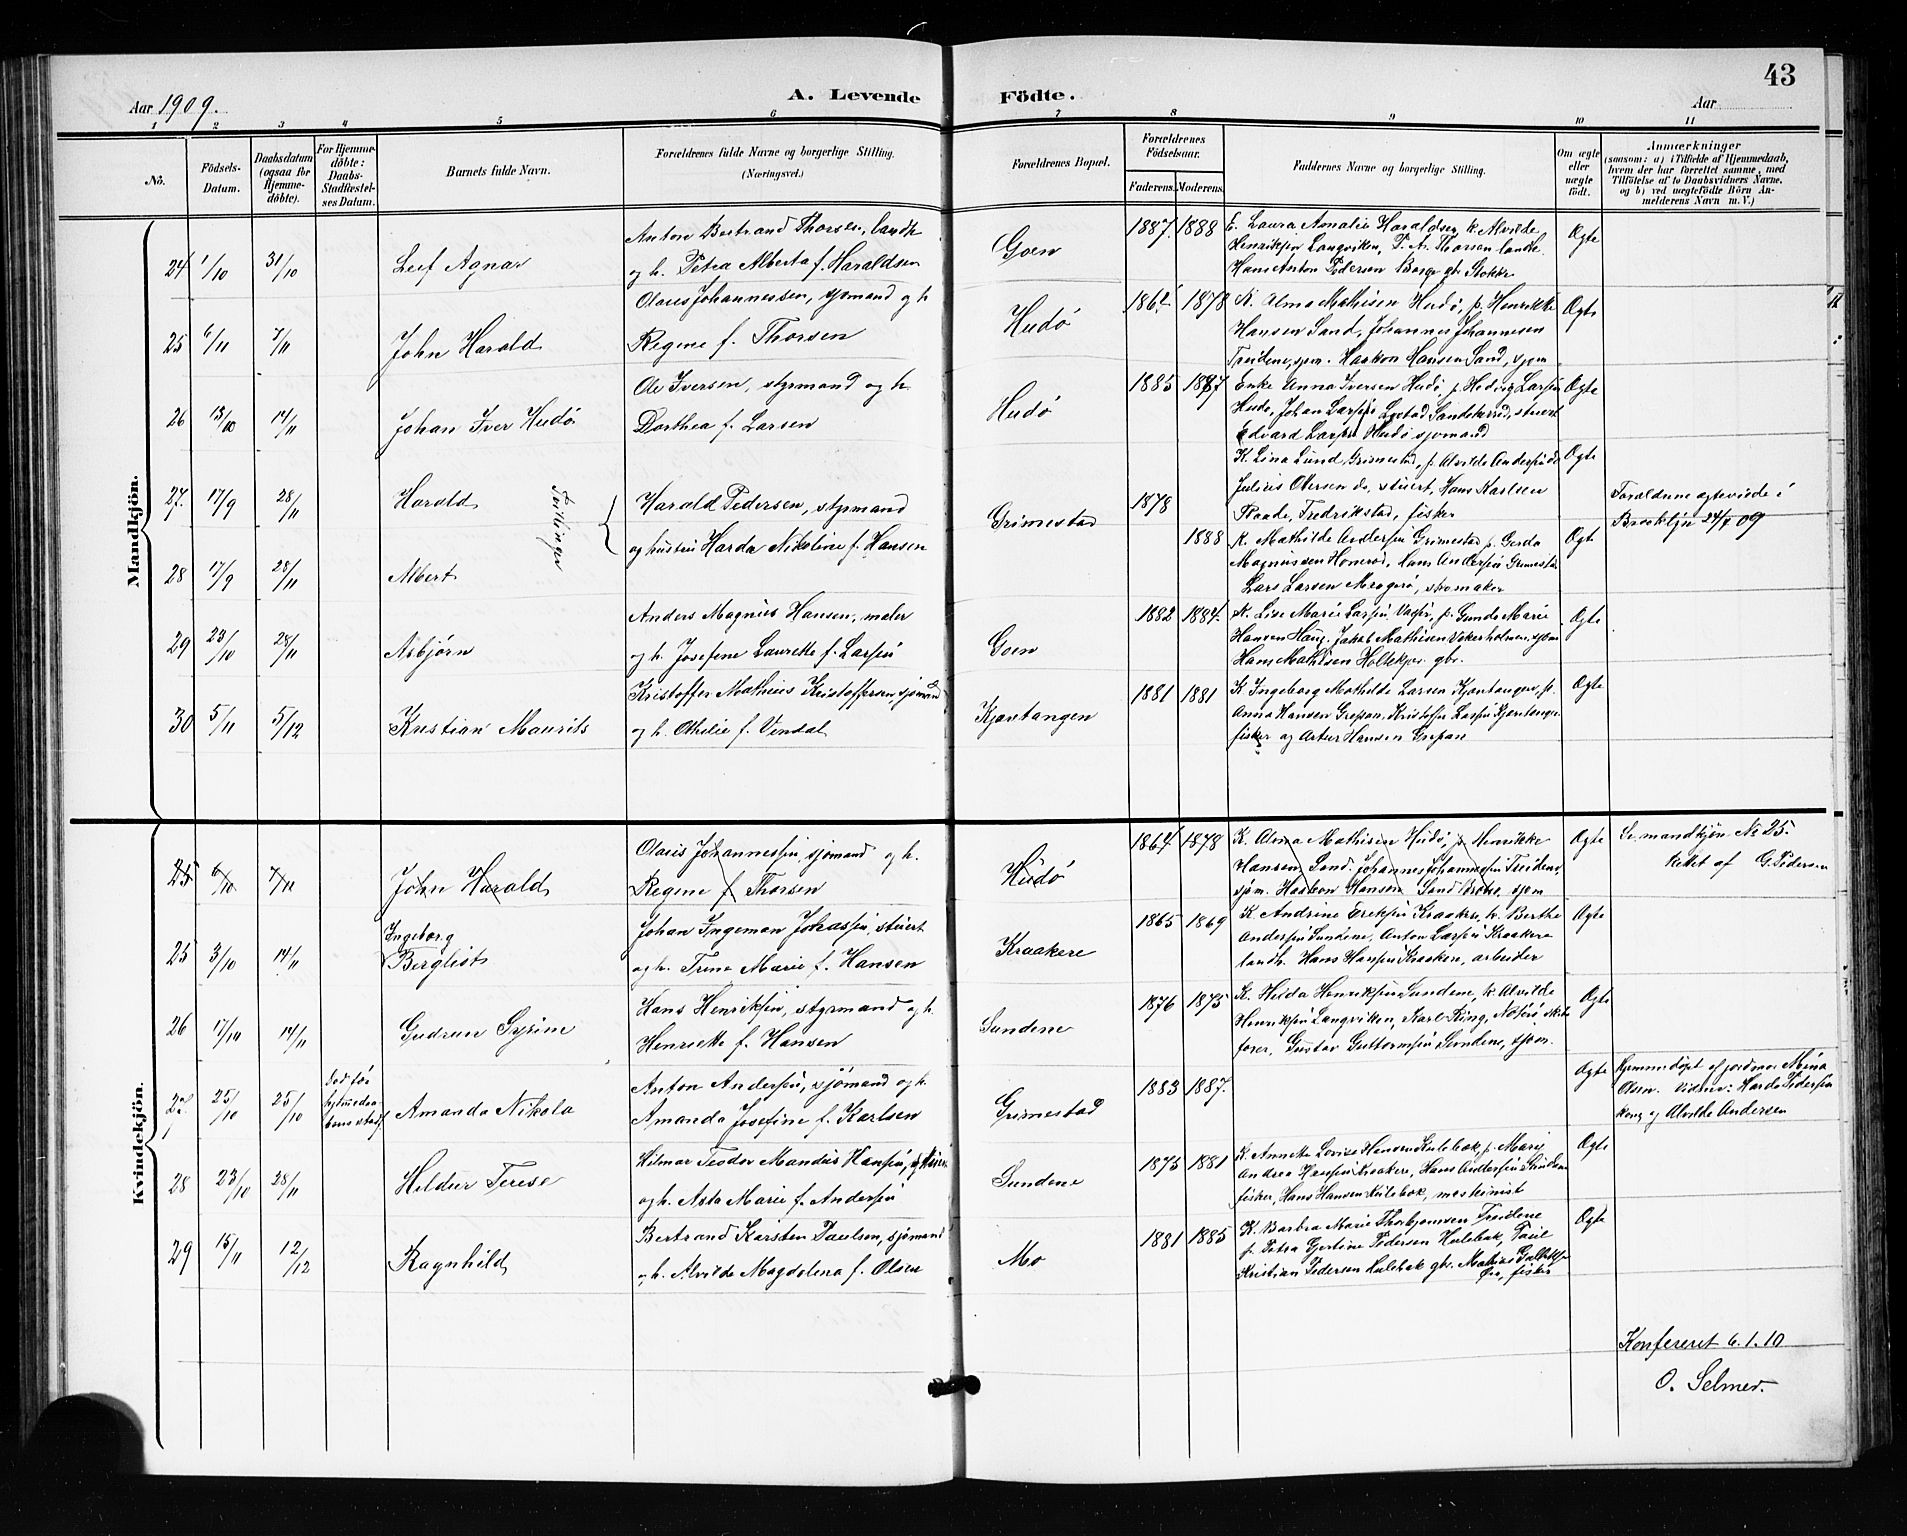 Aar 1909.
A. Levende Födte.
Aar
43
1 2 3 4 5 6 7 8 9 10 11
No.
Födsels-Datum.
Daabsdatum (ogsaa for Hjemmedöbte).
For Hjemmedöbte: Daabs-Stadfæstelses Datum.
Barnets fulde Navn.
Forældrenes fulde Navne og borgerlige Stilling. (Næringsvei.)
Forældrenes Bopæl.
Forældrenes Födselsaar.
Faderens. Moderens.
Faddernes Navne og borgerlige Stilling.
Om ægte eller uægte födt.
Anmærkninger (saasom: a) i Tilfælde af Hjemmedaab, hvem der har forrettet samme, med Tilföielse af to Daabsvidners Navne, og b) ved uægtefödte Börn Anmelderens Navn m. V.)
Mandkjön.
24 1/10 31/10 Leif Agnar
Anton Bertrand Thorsen, landh
og h. Petra Alberta f. Haraldsen
Goen 1887. 1888
E. Laura Amalie Haraldsen, k. Alvilde
Henriksen Langviken, P. A. Thorsen landh.
Hans Anton Pedersen Borge gbr Stokke
Ægte
25 6/11 7/11 John Harald
Olaus Johannessen, sjømand og h
Regine f. Thorsen
Hudö 1864 1878
K. Alma Mathisen Hudö, p. Henrikke
Hansen Sand, Johannes Johannesen
Treidene, sjøm. Haakon Hansen Sand, sjøm
Ægte
26 13/10 14/11 Johan Iver Hudö
Ole Iversen, styrmand og h
Dorthea f. Larsen
Hudö 1885 1887
Enke Anna Iversen Hudö, p. Hedvig Larsen
Hudö, Johan Larsen Lystad Sandeherred, stuert
Edvard Larsen Hudö sjømand
Ægte
27. 17/9 28/11 Harald
Tvillinger
Harald Pedersen, styrmand
og hustru Harda Nikoline f. Hansen
Grimestad 1878 1888
K. Lina Lund Grimestad, p. Alvilde Andersen do
Julius Olersen do, stuert, Hans Karlsen
Raade, Fredrikstad, fisker
Ægte
Forældrene ægteviede i
Brooklyn 24/ 09
28 17/9 28/11 Albert
K. Mathilde Andersen Grimestad p. Gerda
Magnussen Honerød, Hans Andersen Grimestad
Lars Larsen Magerö, skomaker
Ægte
29 23/10 28/11 Asbjörn
Anders Magnus Hansen, maler
og h. Josefine Laurette f. Larsen
Goen 1882 1884.
K. Lise Marie Larsen Vasser, p. Gunda Marie
Hansen Haug. Jakob Mathisen Vekerholmen, sjøm
Hans Mathisen Holtekjær. gbr.
Ægte
30 5/11 5/12 Kristian Maurits
Kristoffer Matheus Kristoffersen, sjömand
og h. Othilie f. Vendal
Kjøntangen 1881 1881
K Ingeborg Mathilde Larsen Kjøntangen, p.
Anna Hansen Grepan, Kristoffer Larsen Kjøntangen
fisker og Artur Hansen Grepan
Ægte
Kvindekjön.
25 6/10 7/11 John Harald
Olaus Johannessen sjømand og h.
Regine f Thorsen
Hudö 1864 1878
K. Alma Mathisen Hudö, p Henrikke
Hansen Sand. Johannes Johannesen Treidene,
sjøm. Haakon Hansen Sand, sjøm
Ægte
Se mandkjön No 25.
rettet af G. Pedersen
25 3/10 14/11 Ingeborg
Bergliot
Johan Ingeman Johansen, stuert
og h. Trine Marie f. Hansen
Kraakere 1865 1869
K Andrine Eriksen Kraakere, k. Berthe
Andersen Sundene, Anton Larsen Kraakere
landh. Hans Hansen Kraakere, arbeider
Ægte
26 17/10 14/11 Gudrun Syrine
Hans Henriksen, styrmand og h.
Henriette f. Hansen
Sundene 1876 1875
K. Hilda Henriksen Sundene, k. Alvilde
Henriksen Langviken, Karl Ring, Nøterö skibs
fører, Gustav Guttormsen Sundene, sjøm.
Ægte
27 25/10 25/10
död før
hjemmedaabens stadf
Amanda Nikola
Anton Andersen, sjömand og h.
Amanda Josefine f. Karlsen
Grimestad 1883 1887.
Ægte
Hjemmedøpt af jordmor Mina
Olsen. Vidner: Harda Pedersen
kone og Alvilde Andersen
28 23/10 28/11 Hildur Terese
Hilmar Teodor Mandius Hansen,
og h. Asta Marie f. Andersen
Sundene 1875 1881
K. Annette Lovise Hansen Kulebak, p. Marie
Andrea Hansen Kraakere, Hans Andersen Sundene
fisker, Hans Hansen Kulebak, maskinist
Ægte
29 15/11 12/12 Ragnhild
Bertrand Karsten Paulsen, sjömand
og h. Alvilde Magdalena f. Olsen
Mo 1881 1885
K. Barbra Marie Thorbjørnsen Treidene
p. Petra Gjertine Pedersen Hulebak, Paul
Kristian Pedersen Hulebak gbr. Mathias
Øra, fisker
Ægte
Konfereret 6.1.10
O. Selmer.